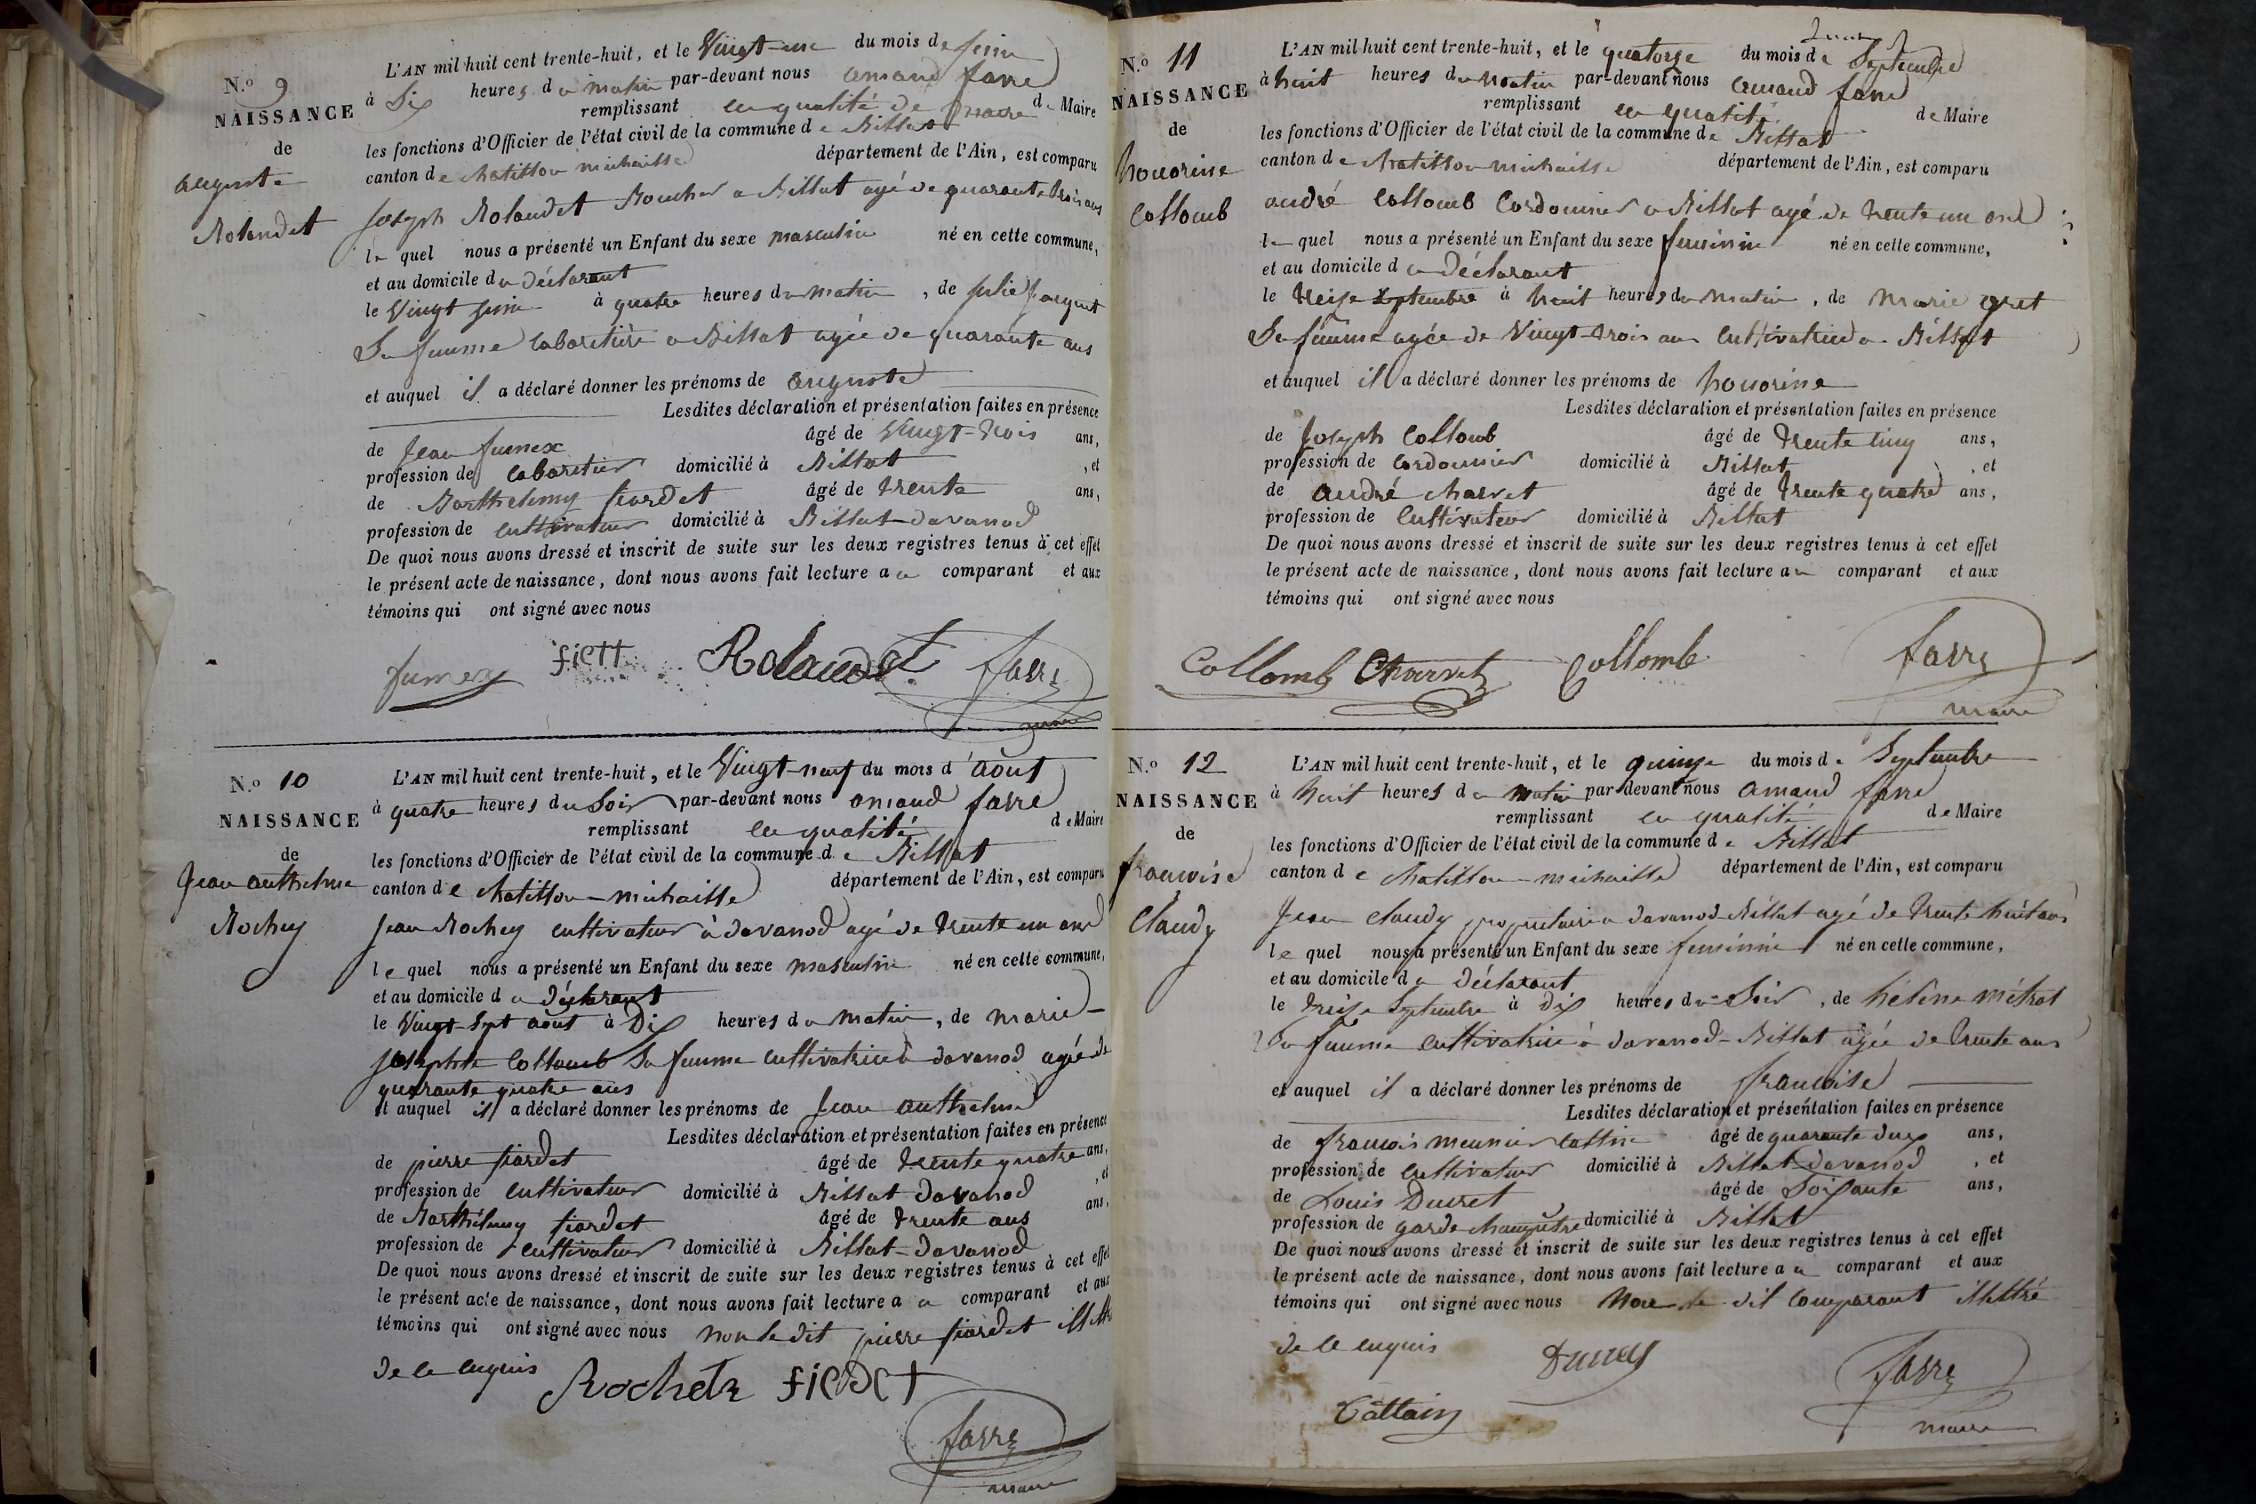 N.o 9
NAISSANCE
de
auguste
Rolandet
L'AN mil huit cent trente-huit, et le Vingt-un du mois de juin
à Six heures du matin par-devant nous amand favre
remplissant en qualité de maire de Maire
les fonctions d'Officier de l'état civil de la commune de Billiat
canton de chatillon michaille département de l'Ain, est comparu
joseph Rolandet Boucher a Billiat agé de quarante trois ans
le quel nous a présenté un Enfant du sexe masculin né en cette commune,
et au domicile du déclarant
le Vingt juin à quatre heures du matin, de julie
Sa femme cabaretière a Billiat agée de quarante ans
et auquel il a déclaré donner les prénoms de auguste
Lesdites déclaration et présentation faites en présence
de jean fumex âgé de Vingt-trois ans,
profession de cabaretier domicilié à Billiat , et
de Barthelemy fiardet âgé de trente ans,
profession de cultivateur domicilié à Billiat-davanod
De quoi nous avons dressé et inscrit de suite sur les deux registres tenus à cet effet
le présent acte de naissance, dont nous avons fait lecture au comparant et aux
témoins qui ont signé avec nous
fumex Rolandet favre
maire
N.o 10
NAISSANCE
de
Jean anthelme
Rochey
L'AN mil huit cent trente-huit, et le Vingt-neuf du mois d'août
à quatre heures du Soir par-devant nous amand favre
remplissant en qualité de Maire
les fonctions d'Officier de l'état civil de la commune de Billiat
canton de chatillon-michaille département de l'Ain, est comparu
jean Rochey cultivateur à davanod agé de trente un ans
le quel nous a présenté un Enfant du sexe masculin né en cette commune,
et au domicile du déclarant
le Vingt-sept août à Dix heures du matin, de marie-
josephte Collomb Sa femme cultivatrice à davanod agée de
quarante quatre ans
et auquel il a déclaré donner les prénoms de Jean anthelme
Lesdites déclaration et présentation faites en présence
de pierre fiardet âgé de trente quatre ans,
profession de cultivateur domicilié à Billiat davanod , et
de Barthélemy fiardet âgé de trente ans ans,
profession de cultivateur domicilié à Billiat-davanod
De quoi nous avons dressé et inscrit de suite sur les deux registres tenus à cet effet
le présent acte de naissance, dont nous avons fait lecture au comparant et aux
témoins qui ont signé avec nous non le dit pierre fiardet
de ce enquis
favre
maire
N.o 11
NAISSANCE
de
honorine
Collomb
L'AN mil huit cent trente-huit, et le quatorze du mois de Septembre
à huit heures du matin par-devant nous amand favre
remplissant en qualité de Maire
les fonctions d'Officier de l'état civil de la commune de Billiat
canton de chatillon-michaille département de l'Ain, est comparu
andré Collomb Cordonnier a Billiat agé de trente un ans
le quel nous a présenté un Enfant du sexe feminin né en cette commune,
et au domicile du déclarant
le treize septembre à huit heures du matin, de marie gret
Sa femme agée de Vingt-trois ans cultivatrice a Billiat
et auquel il a déclaré donner les prénoms de honorine
Lesdites déclaration et présentation faites en présence
de joseph Collomb âgé de trente cinq ans,
profession de cordonnier domicilié à Billiat , et
de andré charvet âgé de trente quatre ans,
profession de cultivateur domicilié à Billiat
De quoi nous avons dressé et inscrit de suite sur les deux registres tenus à cet effet
le présent acte de naissance, dont nous avons fait lecture au comparant et aux
témoins qui ont signé avec nous
Collomb Charvet Collomb favre
maire
N.o 12
NAISSANCE
de
francoise
Claudy
L'AN mil huit cent trente-huit, et le quinze du mois de Septembre
à huit heures du matin par-devant nous amand favre
remplissant en qualité de Maire
les fonctions d'Officier de l'état civil de la commune de Billiat
canton de chatillon-michaille département de l'Ain, est comparu
Jean Claudy propriétaire a davanod-Billiat agé de trente huit ans
le quel nous a présenté un Enfant du sexe feminin né en cette commune,
et au domicile du déclarant
le treize septembre à dix heures du Soir, de hélène métral
Sa femme cultivatrice à davanod-Billiat agée de trente ans
et auquel il a déclaré donner les prénoms de francoise
Lesdites déclaration et présentation faites en présence
de francois meunier cattin âgé de quarante deux ans,
profession de cultivateur domicilié à Billiat-davanod , et
de Louis Ducret âgé de Soixante ans,
profession de garde champêtre domicilié à Billiat
De quoi nous avons dressé et inscrit de suite sur les deux registres tenus à cet effet
le présent acte de naissance, dont nous avons fait lecture au comparant et aux
témoins qui ont signé avec nous Non le dit comparant illettré
de ce enquis
favre
maire